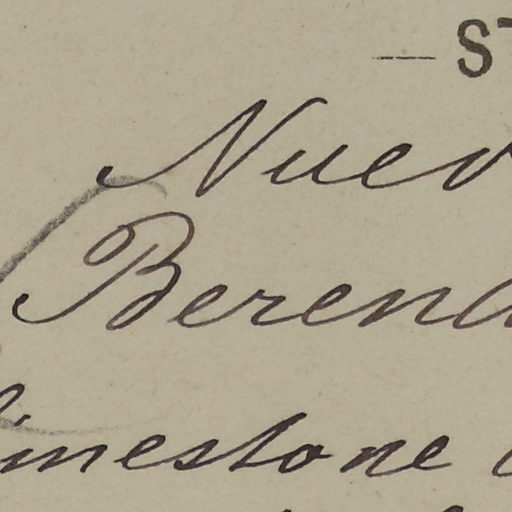 — ST
Nuev
Berend
limestone